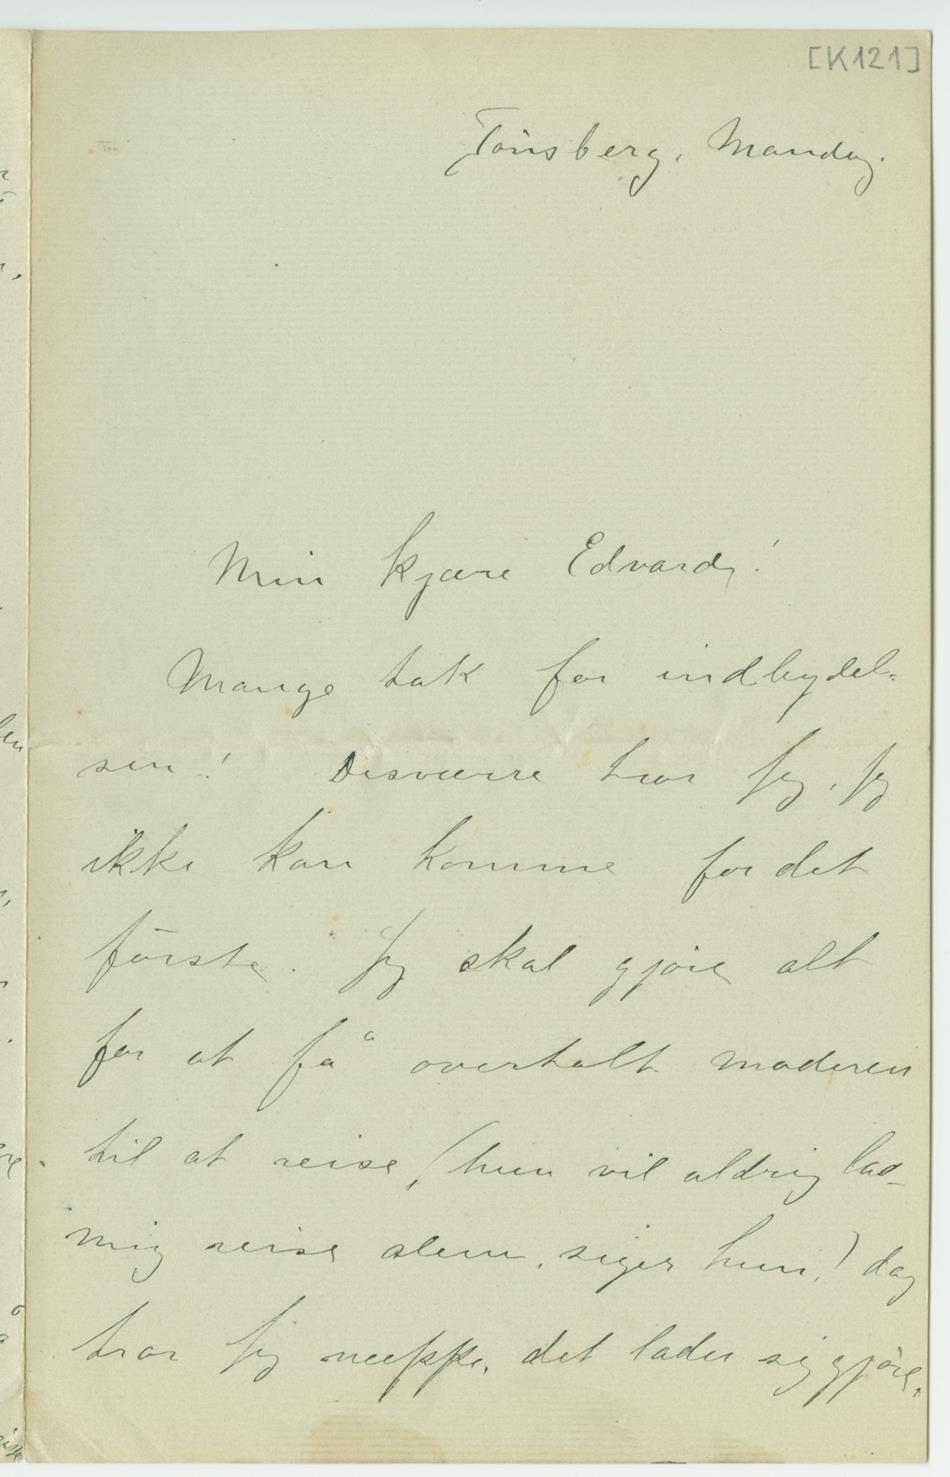 [K121]
Tönsberg. Mandag.
Min kjære Edvard!
Mange tak for indbydel-
sen! Desværre tror jeg, jeg
ikke kan komme for det
förste. Jeg skal gjöre alt
for at få overtalt moderen
til at reise, (hun vil aldrig lad-
mig reise alene, siger hun,) dog
tror jeg neppe, det lader sig gjöre.